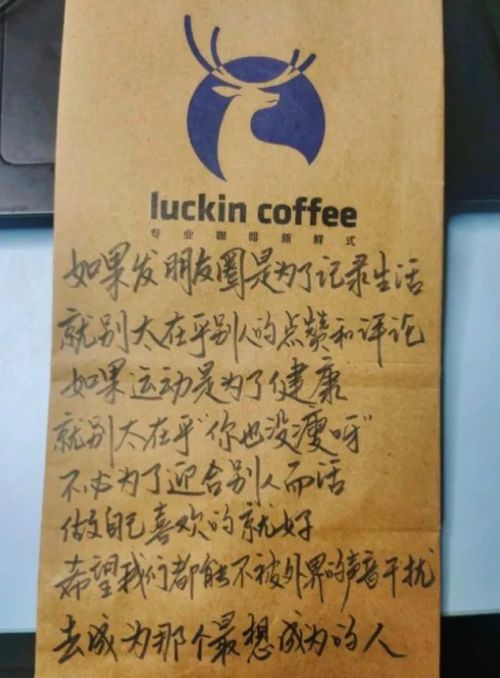 luckin coffee
专业咖啡新鲜式
如果发朋友圈是为了记录生活
就别太在乎别人的点赞和评论
如果运动是为了健康
就别太在乎"你也没瘦呀"
不必为了迎合别人而活
做自己喜欢的就好
希望我们都能不被外界的声音干扰
去成为那个最想成为的人